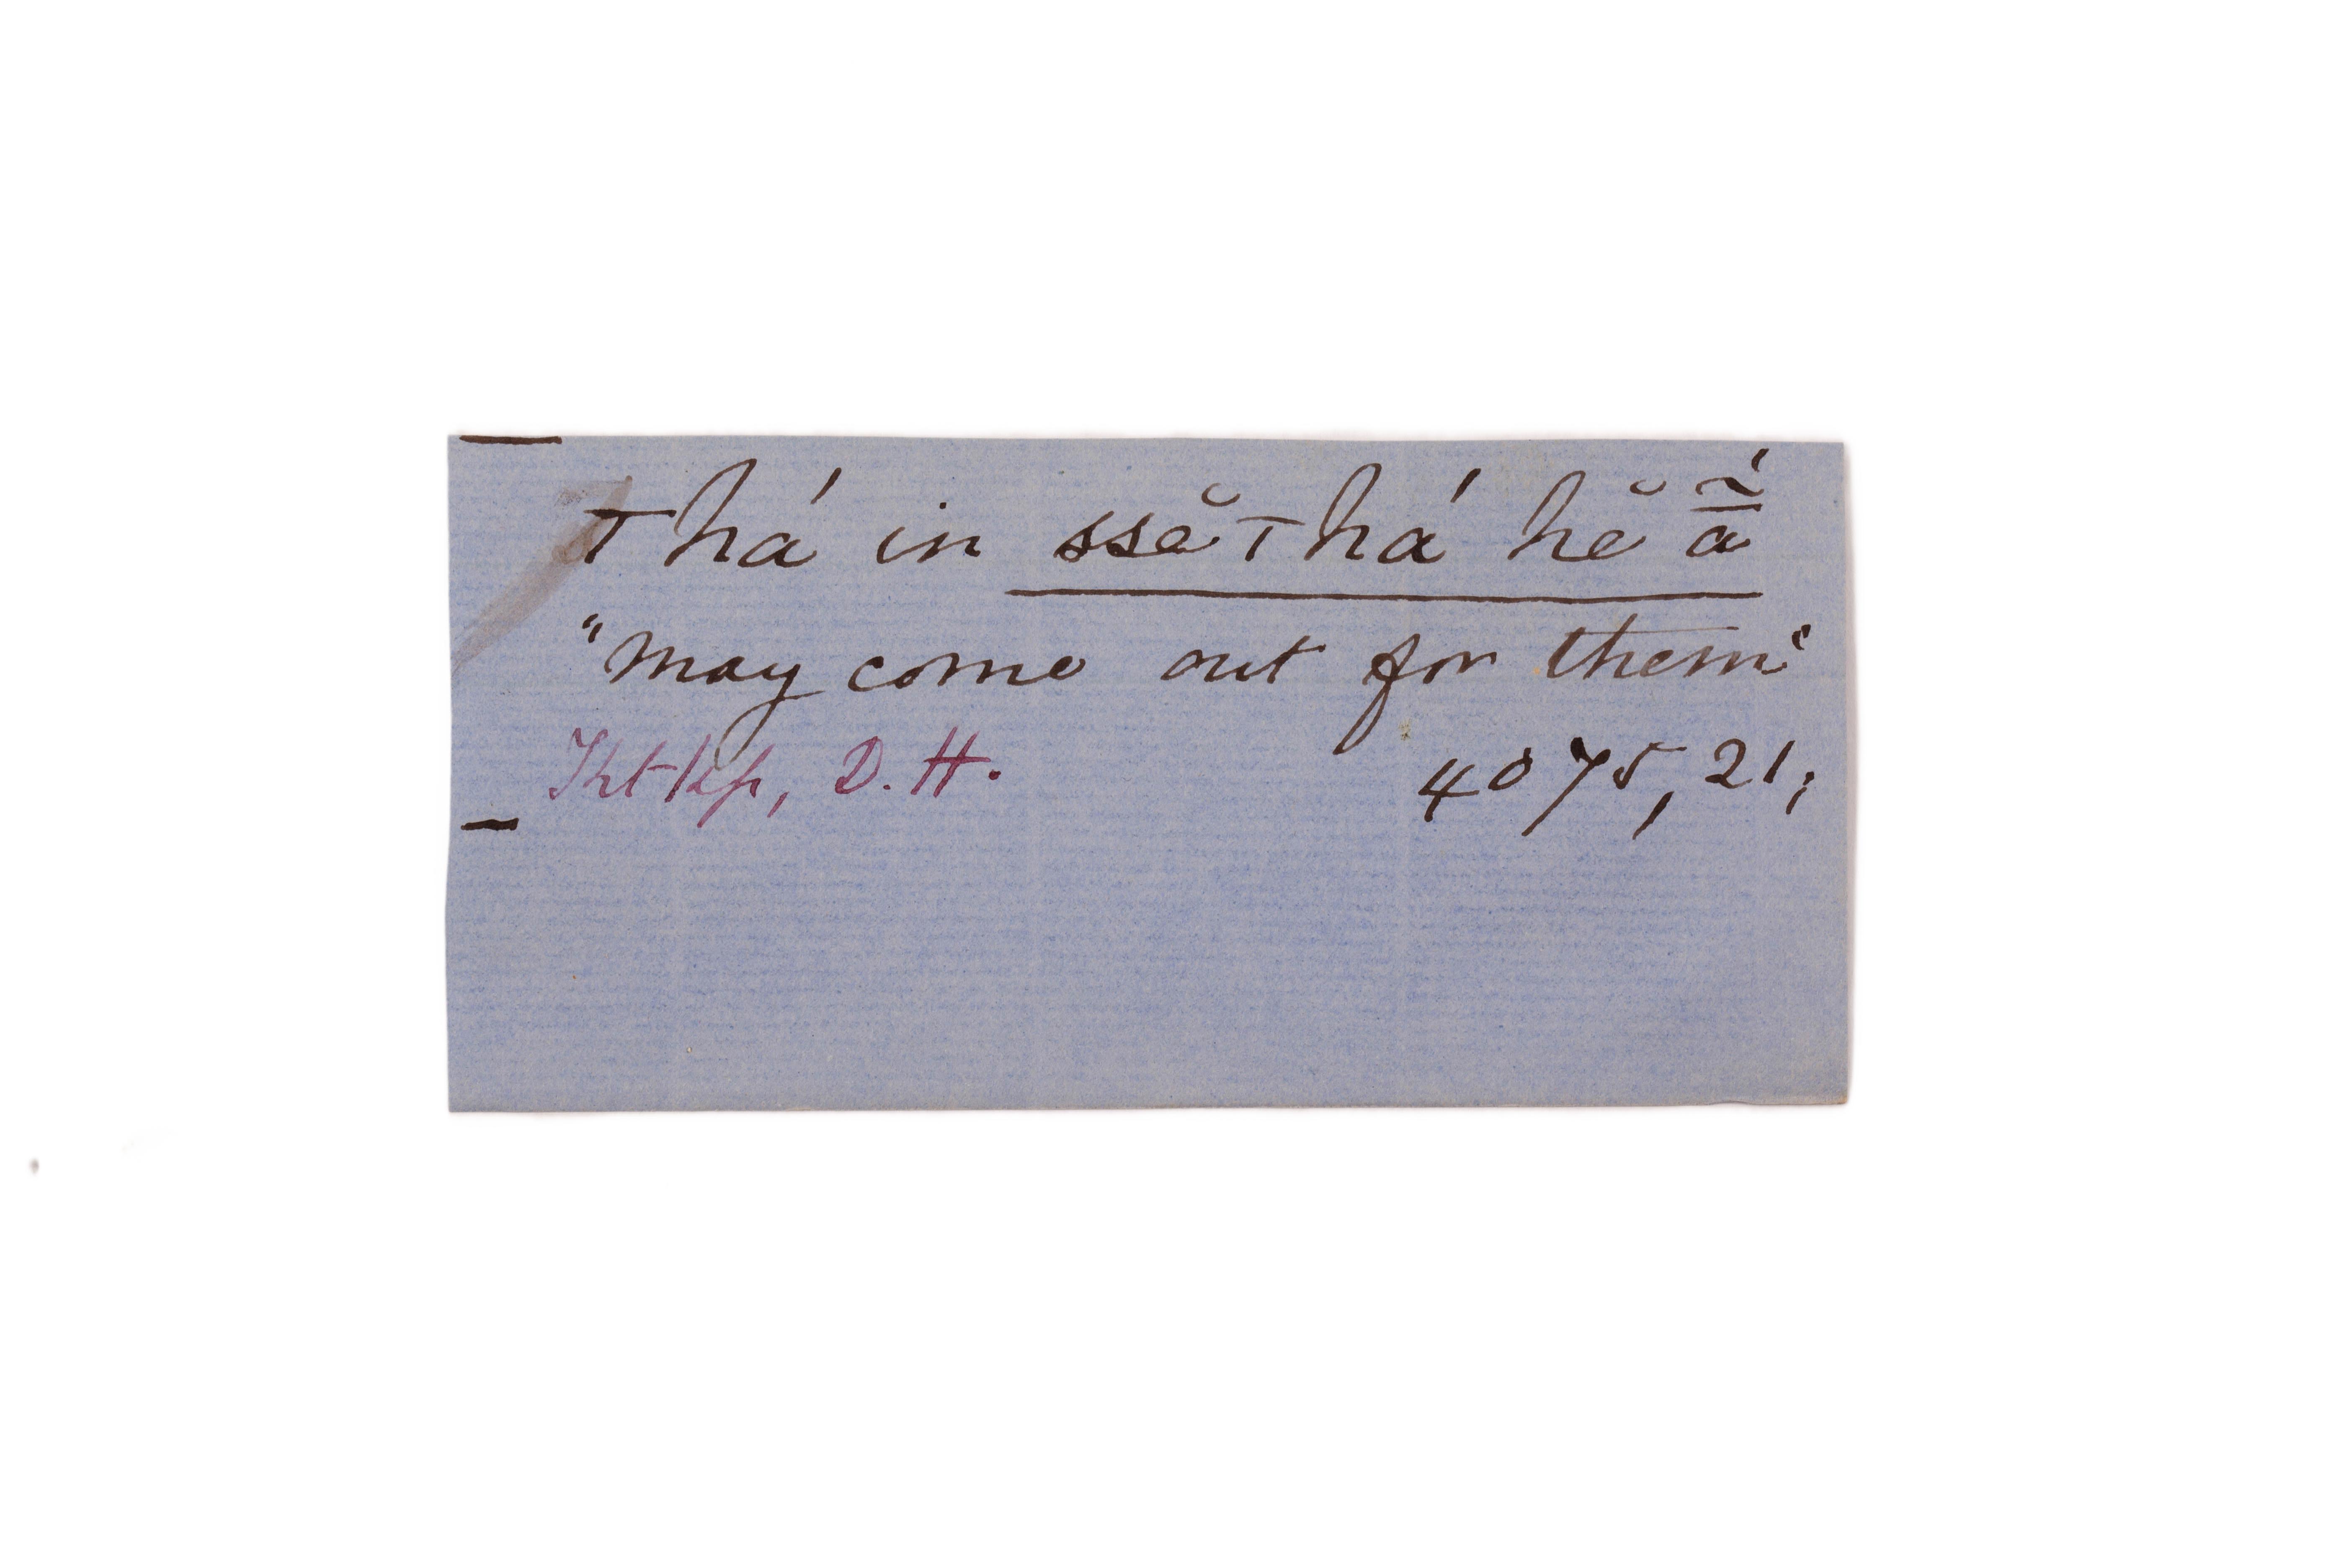 Thá in ssĕThá hĕ ā̰́
"may come out for them"
Kt kp, D. H. 4075, 21;